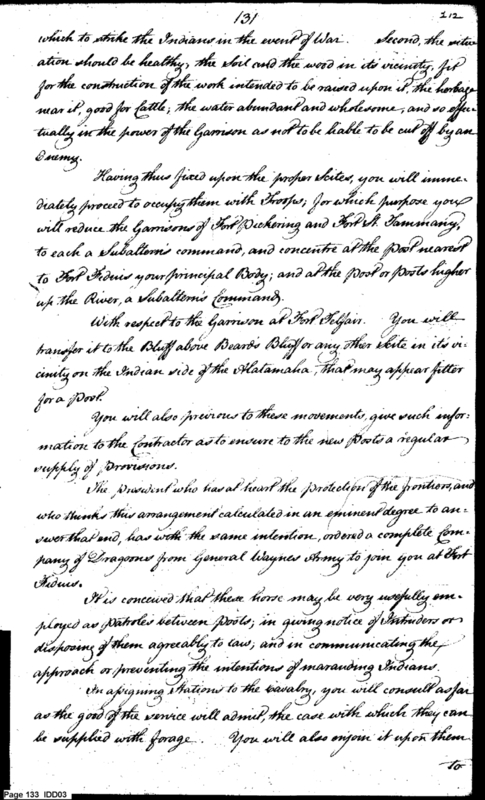 131
112
which to strike the Indians in the event of War. Second, the situ-
ation should be healthy, the soil and the wood in its vicinity, fit
for the construction of the work intended to be raised upon it, the herbage
near it, good for Cattle; the water abundant and wholesome, and so effec-
tually in the power of the Garrison as not to be liable to be cut off by an
Enemy.
Having thus fixed upon the proper Scites, you will imme-
diately proceed to occupy them with Troops; for which purpose you
will reduce the Garrisons of Fort Pickering and Fort St. Tammany,
to each a Subaltern's command, and concentre at the Post nearest
to Fort Fidius your principal Body; and at the Post or Posts higher
up the River, a Subaltern's Command.
With respect to the Garrison at Fort Telfair. You will
transfer it to the Bluff above Beard's Bluff or any other Scite in its vi-
cinity on the Indian side of the Alatamaha, that may appear fitter
for a Post.
You will also previous to these movements, give such infor-
mation to the Contractor as to ensure to the new Posts a regular
supply of Provisions.
The President who has at heart the protection of the frontiers, and
who thinks this arrangement calculated in an eminent degree to an-
swer that end, has with the same intention, ordered a complete Com-
pany of Dragoons from General Wayne's Army to join you at Fort
Fidius.
It is conceived that these horse may be very usefully em-
ployed as Patroles between Posts; in giving notice of Intruders or
disposing of them agreeably to law; and in communicating the
approach or preventing the intentions of marauding Indians.
In assigning stations to the Cavalry, you will consult as far
as the good of the service will admit, the ease with which they can
be supplied with forage. You will also enjoin it upon them
to
Page 133 IDD03